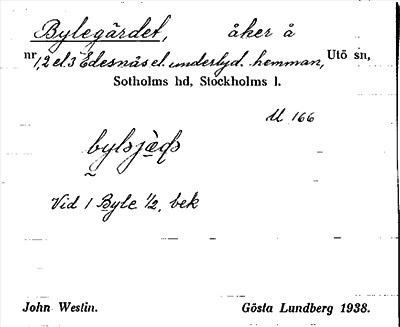 Bylegärdet, åker å
nr 1,2 el. 3 Edesnäs el. underlyd. hemman, Utö sn,
Sotholms hd, Stockholms l.
U 166
Vid 1 Byle 1/2, bek
John Westin. Gösta Lundberg 1938.